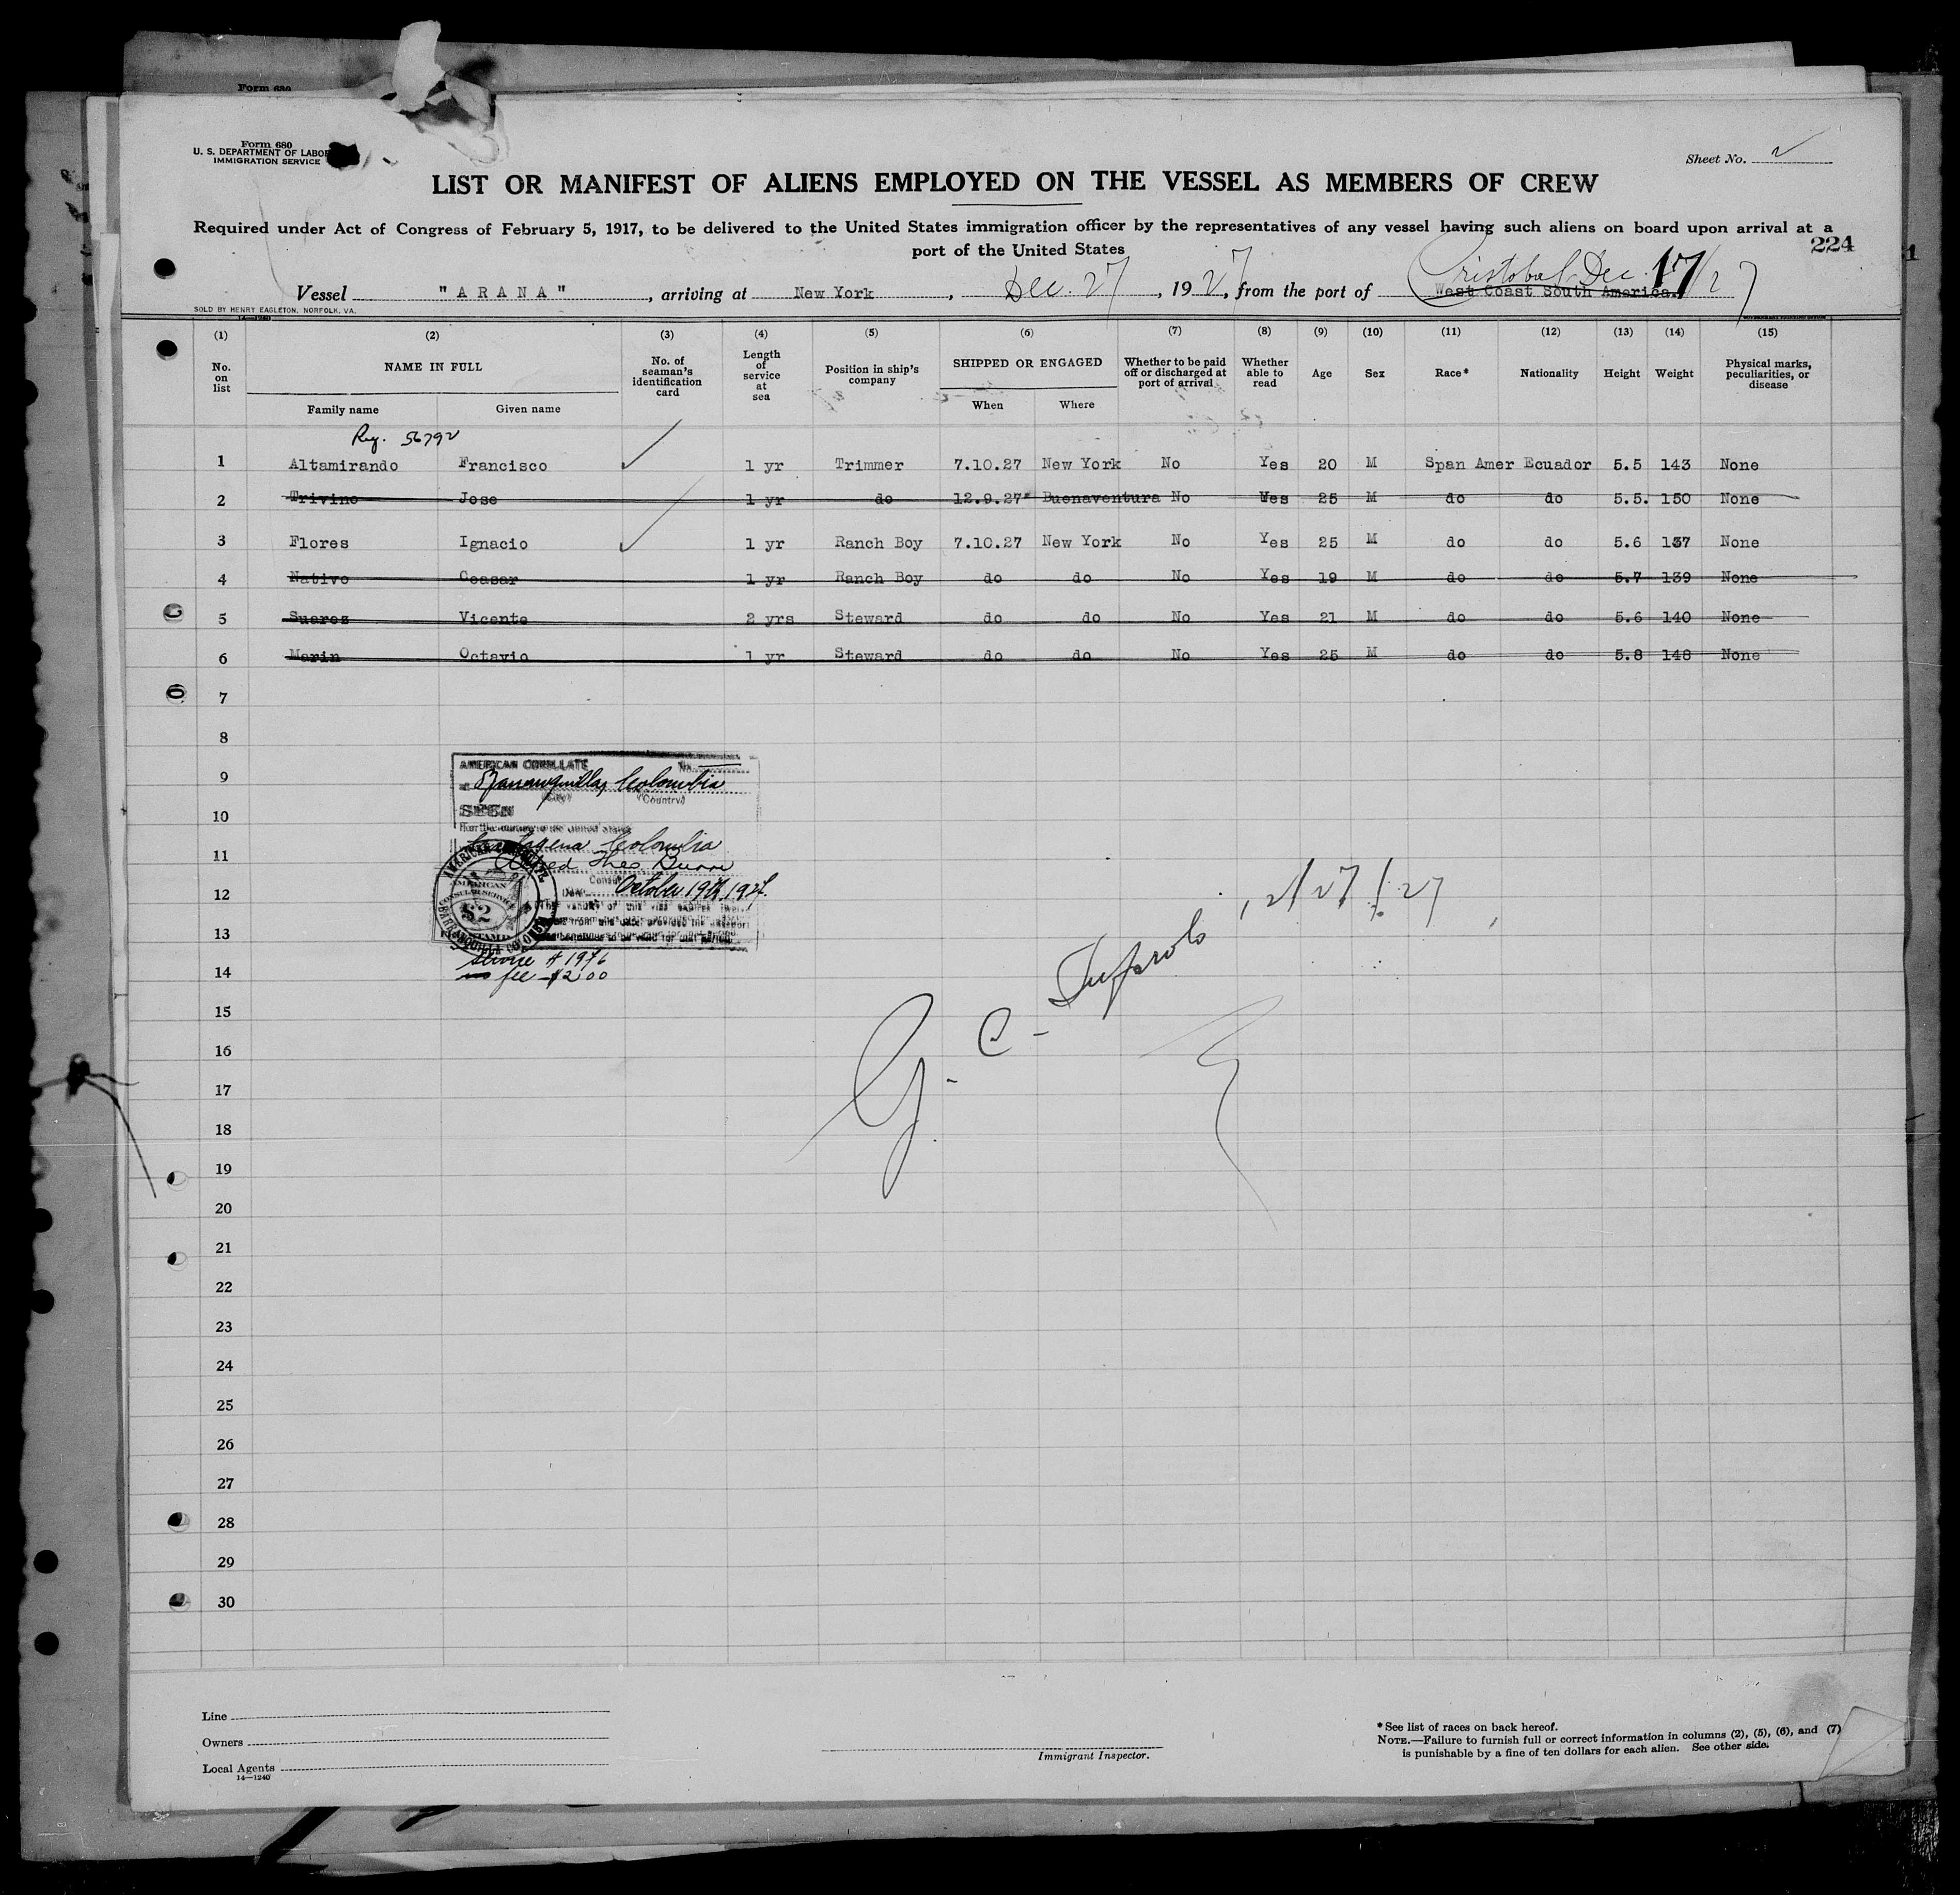 Form 680
Form 680
U. S. DEPARTMENT OF LABOR
IMMIGRATION SERVICE
Sheet No. 2
LIST OR MANIFEST OF ALIENS EMPLOYED ON THE VESSEL AS MEMBERS OF CREW
Required under Act of Congress of February 5, 1917, to be delivered to the United States immigration officer by the representatives of any vessel having such aliens on board upon arrival at a
port of the United States
224
Cristobal Dec. 17/27
Vessel "ARANA", arriving at New York, Dec. 27, 1927, from the port of West Coast South America.
SOLD BY HENRY EAGLETON, NORFOLK, VA.
(1) (2) (3) (4) (5) (6) (7) (8) (9) (10) (11) (12) (13) (14) (15)
No. on list NAME IN FULL No. of seaman's identification card Length of service at sea Position in ship's company SHIPPED OR ENGAGED Whether to be paid off or discharged at port of arrival Whether able to read Age Sex Race* Nationality Height Weight Physical marks, peculiarities, or disease
Family name Given name When Where
Reg. 56792
1 Altamirando Francisco 1 yr Trimmer 7.10.27 New York No Yes 20 M Span Amer Ecuador 5.5 143 None
2 Trivino Jose 1 yr do 12.9.27 Buenaventura No Yes 25 M do do 5.5. 150 None
3 Flores Ignacio 1 yr Ranch Boy 7.10.27 New York No Yes 25 M do do 5.6 137 None
4 Nativo Ceasar 1 yr Ranch Boy do do No Yes 19 M do do 5.7 139 None
5 Suarez Vicente 2 yrs Steward do do No Yes 21 M do do 5.6 140 None
6 Marin Octavio 1 yr Steward do do No Yes 25 M do do 5.8 148 None
7
8
9
10
11
12
13
14
15
16
17
18
19
20
21
22
23
24
25
26
27
28
29
30
AMERICAN CONSULATE No.
at Barranquilla, Colombia
(Country)
SEEN
For the journey to the United States
Cartagena Colombia
Consul
Date October 19th, 1927.
AMERICAN
CONSULAR SERVICE
$2
STAMP
Service # 1976
fee $2.00
12/27/27
G. C.
Line
Owners
Local Agents
14—1240
Immigrant Inspector.
*See list of races on back hereof.
NOTE.—Failure to furnish full or correct information in columns (2), (5), (6), and (7)
is punishable by a fine of ten dollars for each alien. See other side.